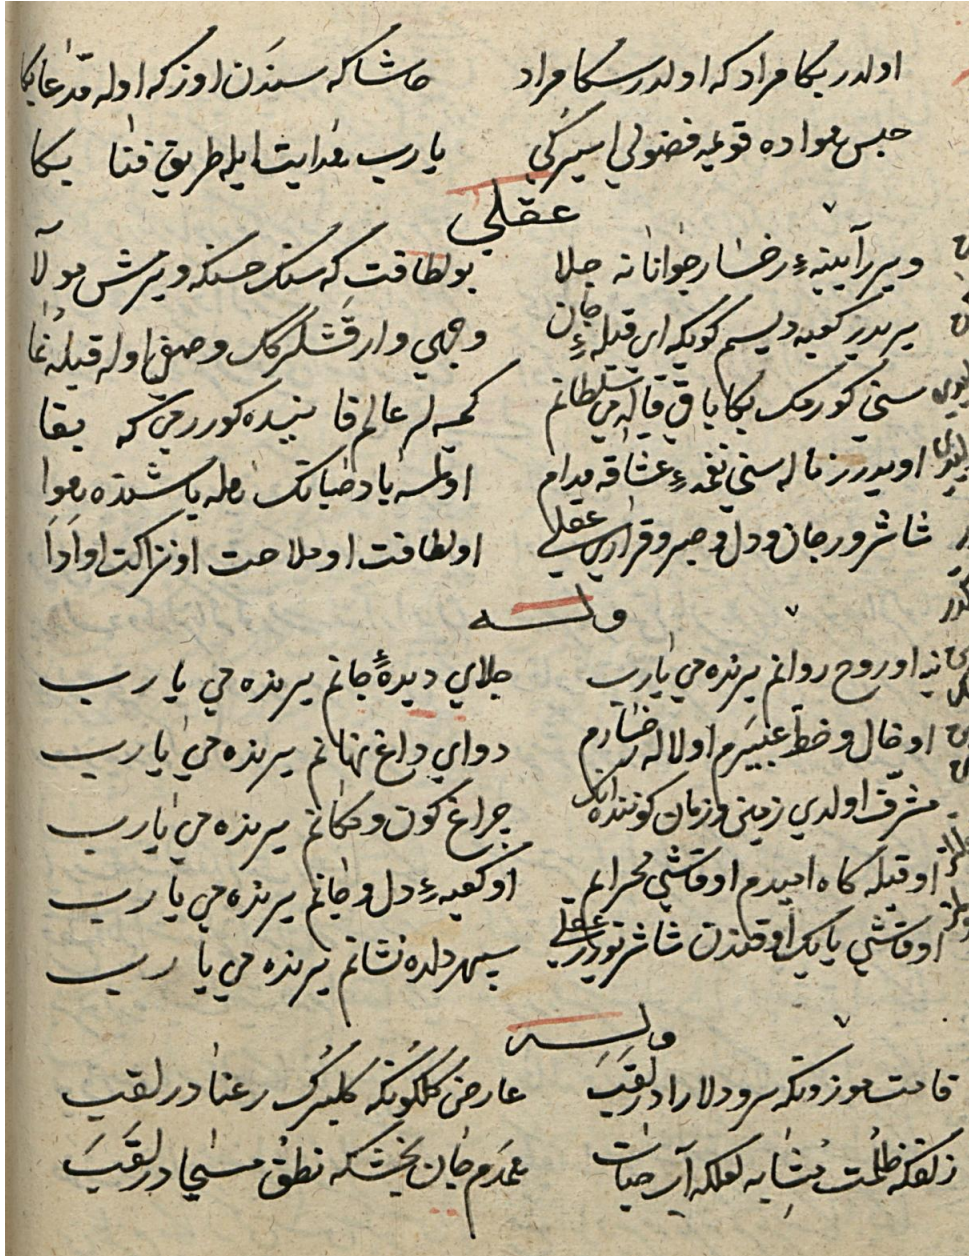 اولدر بكا مراد كه اولدر سكا مراد حاشا كه سندن اوزكه اوله مدعا بكا
حبس هواده قويمه فضولي اسيركي يا رب هدايت ايله طريق فنا بكا
عقلي
ويرر آيينهء رخسار جوانانه جلا بو لطافت كه سنك حسنكه ويرمش مولا
يريدر كعبه ديسم كويكه اي قبلهء جان وجهي وار قشلرك وصفى اوله قبله نما
سني كورمك بكا باقي قاله مي سلطانم كيمسه لر عالم فانيده كورر مي كه بقا
اويدرر ناله سني نغمهء عشاقه مدام اولمسه ياد ضيانك هله باشنده هوا
شاشرور جان و دل و صبر و قرارى عقلي او لطافت او ملاحت او نزاكت او ادا
وله
او روح روانم يرنده مي يا رب جلاي ديدهٔ جانم يرنده مي يا رب
او خال و خط عنبرم او لاله رخسارم دواي داغ نهانم يرنده مي يا رب
مشرق اولدي زمين و زمان كونندن انك چراغ كون و مكانم يرنده مي يا رب
او قبله كاه اميدم او قاشي محرابم او كعبهء دل و جانم يرنده مي يا رب
او قاشي يايك اوقندن شاشر عقلي سپهر دلده نشانم يرنده مي يا رب
وله
قامت موزونكه سرو دلارادر لقب عارض كلكونكه كلبرك رعنادر لقب
زلفكه ظلمت مشابه لعلكه آب حيات همدم جان بخشكه نطق مسيحادر لقب